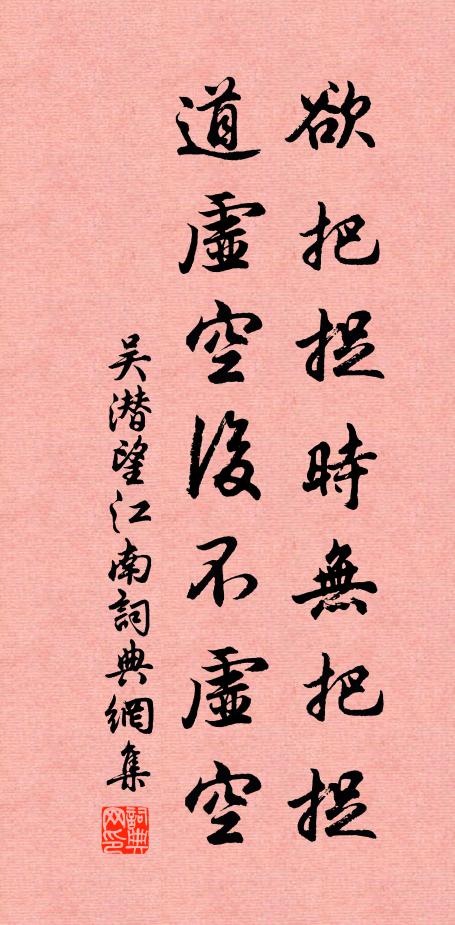 欲把捉時無把捉
道虛空後不虛空
吴潜望江南詞典網集
詞典网印